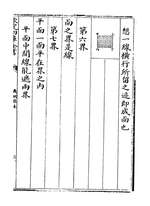 想一線橫行所留之迹即成面也
第六界
面之界是線
第七界
平面一面平在界之內
平面中間線能遮兩界